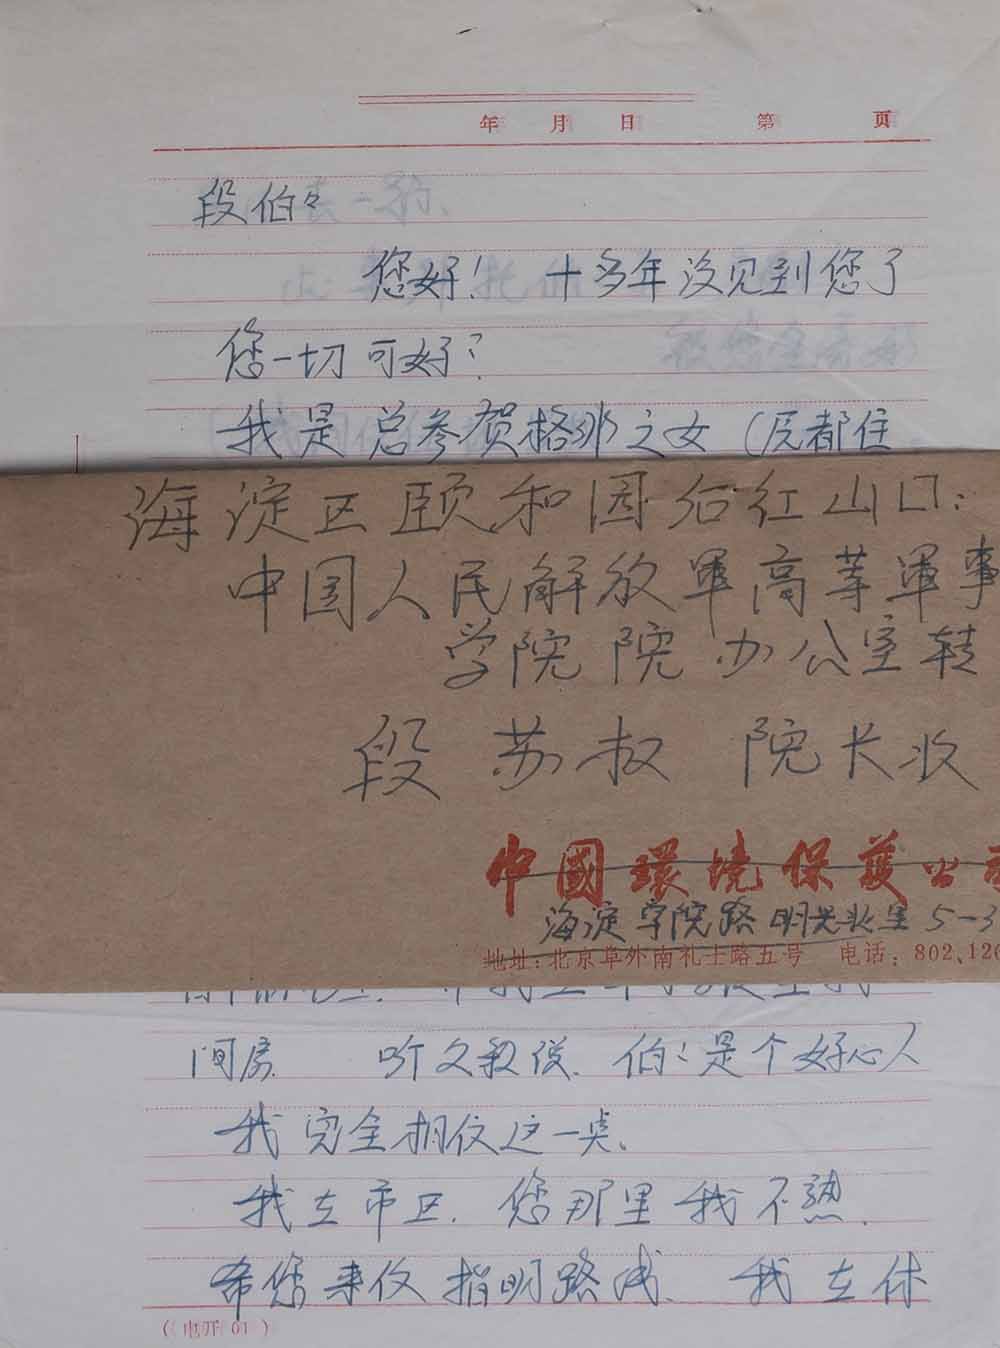 年 月 日 第 页
段伯々
您好! 十多年没见到您了
您一切可好?
我是总参贺格非之女(成都住
海淀区颐和园后红山口:
中国人民解放軍高等軍事
学院院办公室转
段苏权 院长收
中國環境保護公司
海淀学院路明光北里5-3
地址:北京阜外南礼士路五号 电话:802,126
间房. 听父親说. 伯〻是个好心人
我完全相信这一点、
我在市区. 您那里我不熟.
希您来信指明路线. 我在休
(电开01)